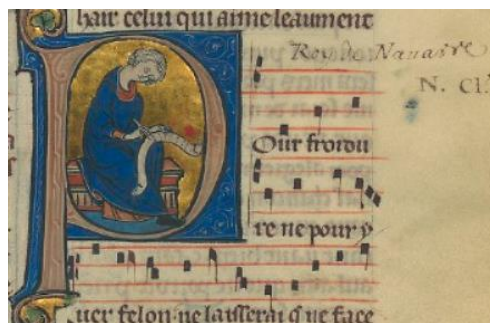 hair celui qui aime leaument
Roy de Nauarre
N. CL
Our froidu
re ne pour y
uer felon ne laisserai q̄ ne face